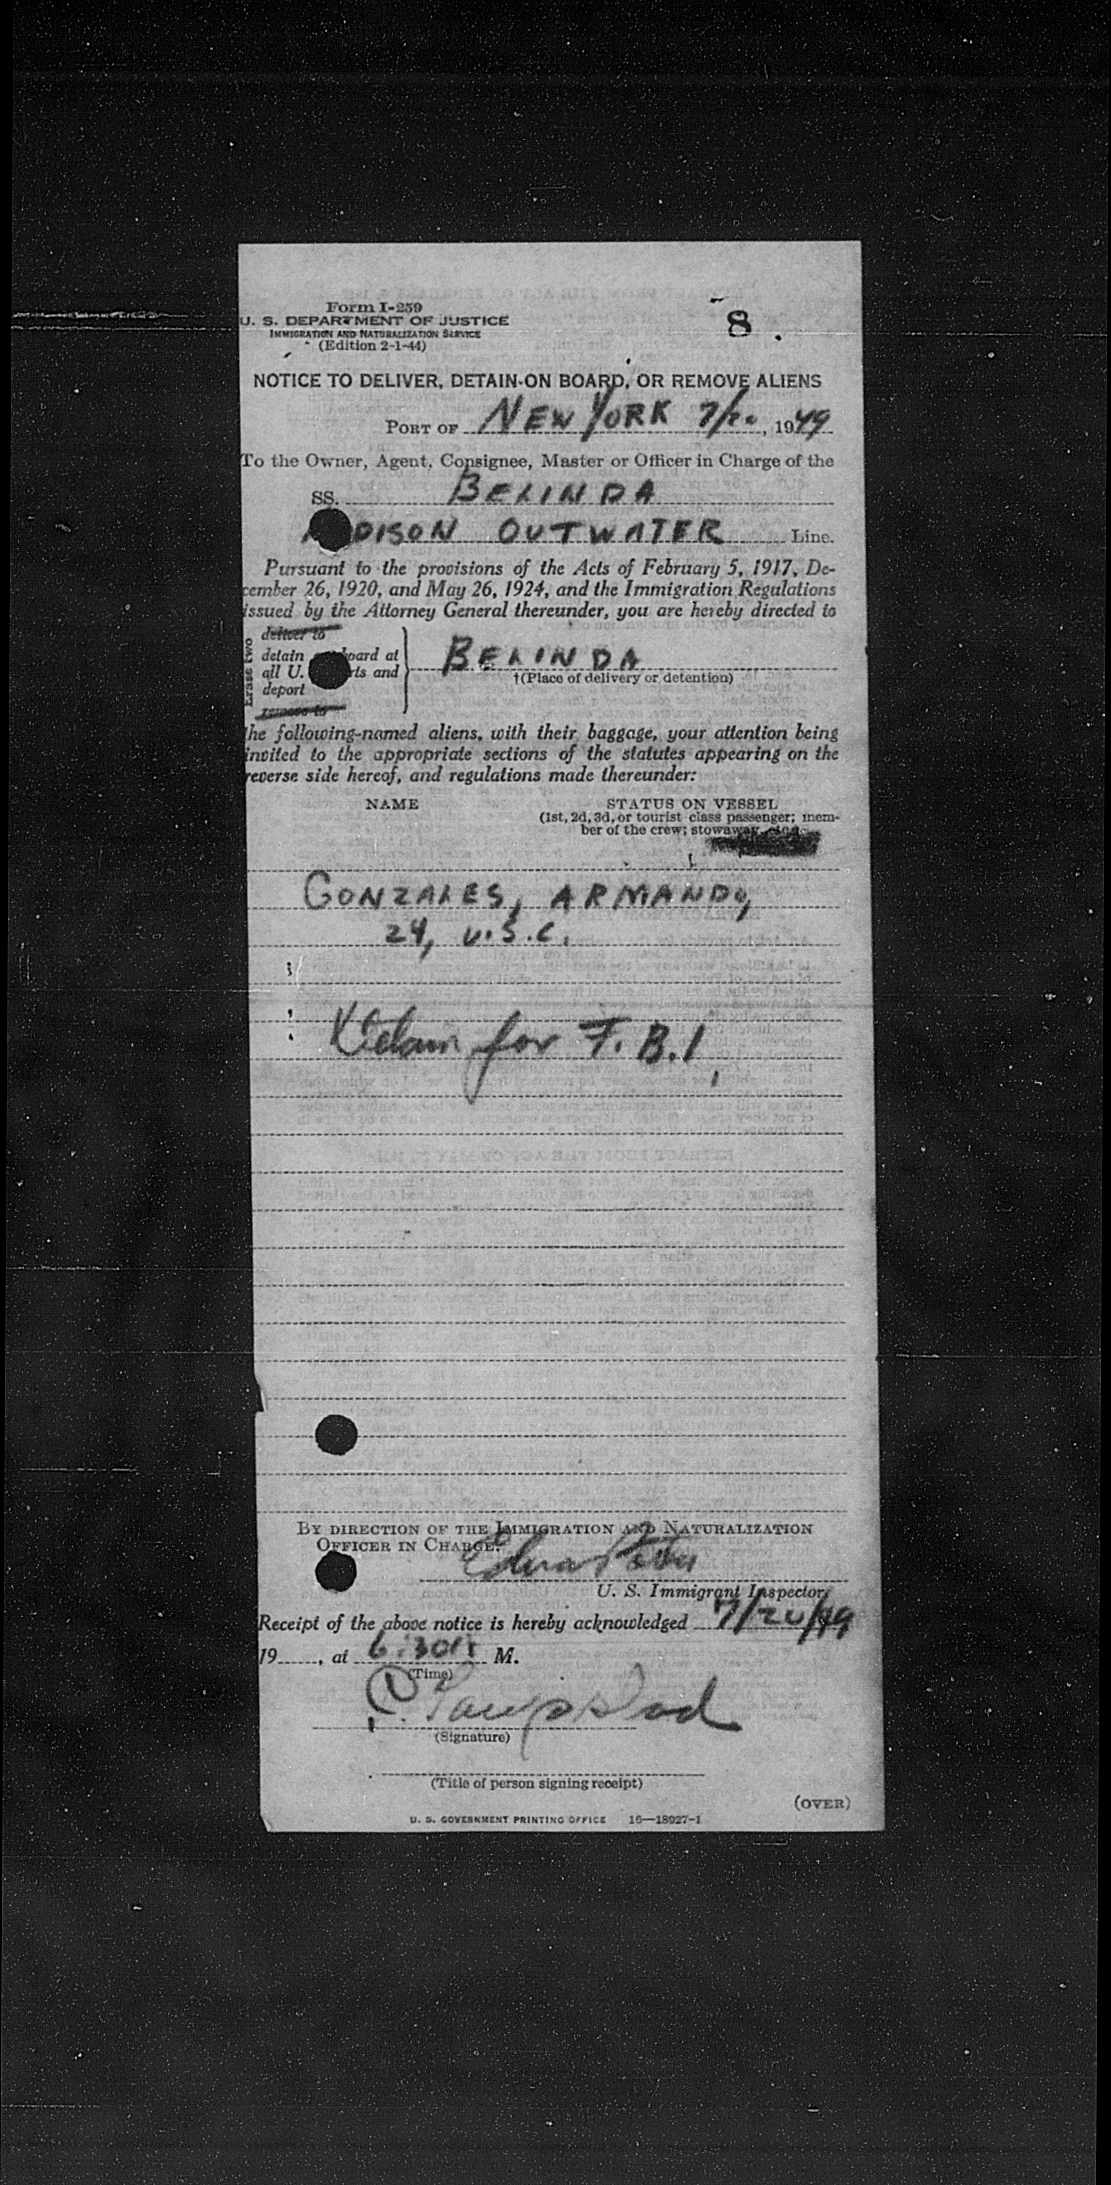 Form I-259
U. S. DEPARTMENT OF JUSTICE
IMMIGRATION AND NATURALIZATION SERVICE
(Edition 2-1-44)
8
NOTICE TO DELIVER, DETAIN ON BOARD, OR REMOVE ALIENS
PORT OF NEW YORK 7/20, 1949
To the Owner, Agent, Consignee, Master or Officer in Charge of the
SS. BELINDA
DISON OUTWATER Line.
Pursuant to the provisions of the Acts of February 5, 1917, De-
cember 26, 1920, and May 26, 1924, and the Immigration Regulations
issued by the Attorney General thereunder, you are hereby directed to
Erase two
deliver to
detain board at
all U. rts and
deport
remove to
BELINDA
†(Place of delivery or detention)
the following-named aliens, with their baggage, your attention being
invited to the appropriate sections of the statutes appearing on the
reverse side hereof, and regulations made thereunder:
NAME STATUS ON VESSEL
(1st, 2d, 3d, or tourist class passenger; mem-
ber of the crew; stowaway, etc.)
GONZALES, ARMANDO,
24, U.S.C.
Detain for F.B.I.
BY DIRECTION OF THE IMMIGRATION AND NATURALIZATION
OFFICER IN CHARGE:
U. S. Immigrant Inspector
Receipt of the above notice is hereby acknowledged 7/20/49
19, at 6:30 M.
(Time)
(Signature)
(Title of person signing receipt)
(OVER)
U. S. GOVERNMENT PRINTING OFFICE 16—18927-1